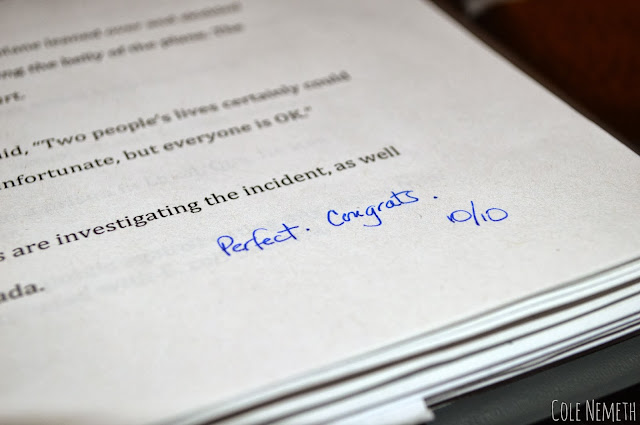 leaned over and
ing the belly of the plane. The
"Two people's lives certainly could
nfortunate, but everyone is OK."
s are investigating the incident, as well
ada.
Perfect. Congrats.
10/10
COLE NEMETH